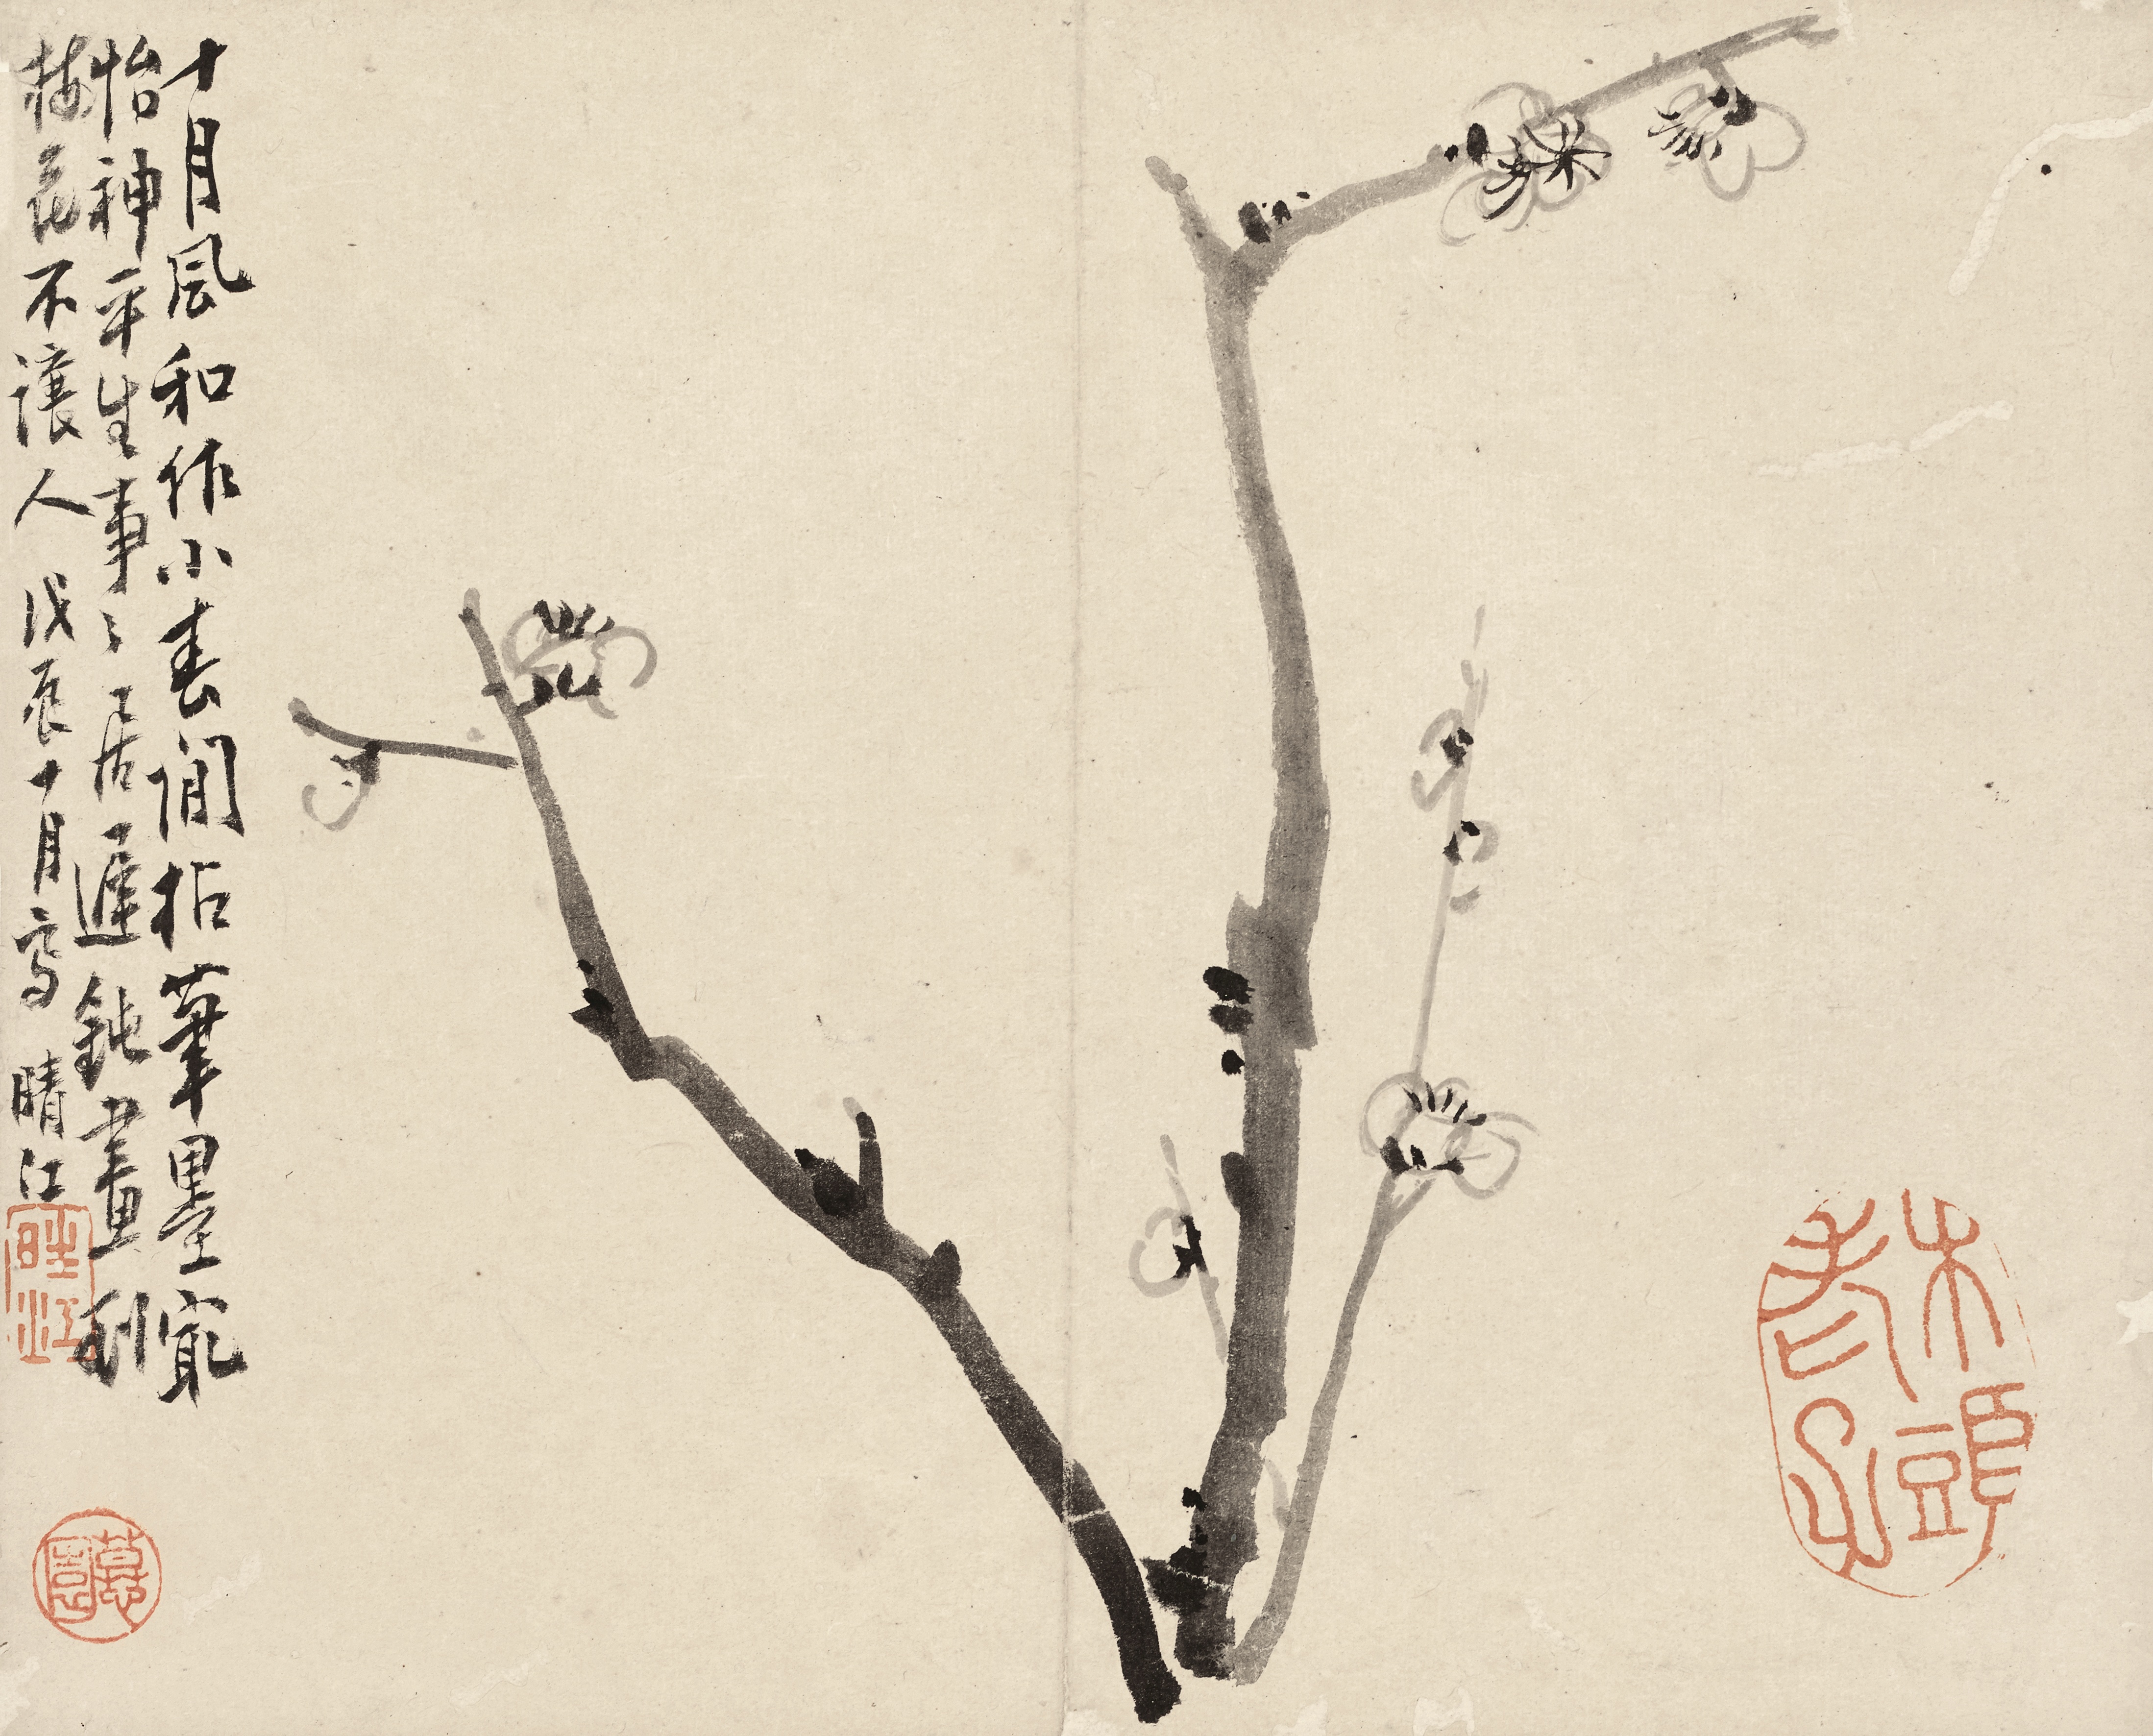 十月風和作小春閒拈筆墨最
怡神平生事々居遲鈍畫到
梅花不讓人 戊辰十月寫 晴江
晴江
木頭老子